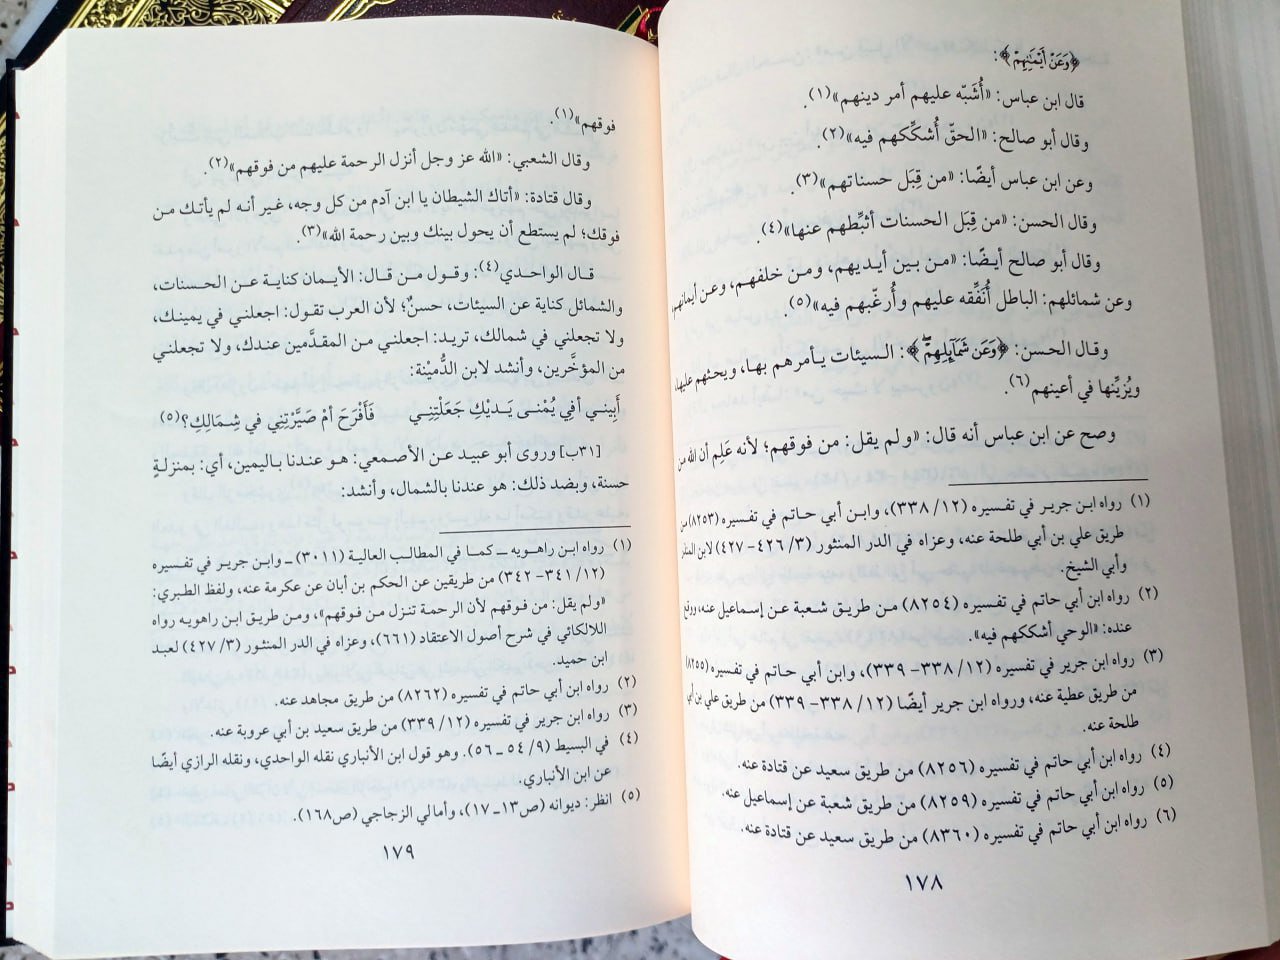 ﴿وَعَنْ أَيْمَٰنِهِمْ﴾:
قال ابن عباس: «أُشَبِّه عليهم أمر دينهم»(١).
وقال أبو صالح: «الحقّ أُشكِّكهم فيه»(٢).
وعن ابن عباس أيضًا: «من قِبَل حسناتهم»(٣)
وقال الحسن: «من قِبَل الحسنات أثبِّطهم عنها»(٤).
وقال أبو صالح أيضًا: «من بين أيديهم، ومن خلفهم، وعن أيمانهم،
وعن شمائلهم: الباطل أُنَفِّقه عليهم وأُرغّبهم فيه»(٥)
وقال الحسن: ﴿وَعَن شَمَآئِلِهِمْ﴾: السيئات يأمرهم بها، ويحثهم عليها،
ويُزيِّنها في أعينهم(٦).
وصح عن ابن عباس أنه قال: «ولم يقل: من فوقهم؛ لأنه عَلِم أن الله من
(١) رواه ابن جرير في تفسيره (١٢/ ٣٣٨)، وابن أبي حاتم في تفسيره (٨٢٥٣) من
طريق علي بن أبي طلحة عنه، وعزاه في الدر المنثور (٣/ ٤٢٦- ٤٢٧) لابن المنذر
وأبي الشيخ.
(٢) رواه ابن أبي حاتم في تفسيره (٨٢٥٤) من طريق شعبة عن إسماعيل عنه، ووقع
عنده: «الوحي أشككهم فيه».
(٣) رواه ابن جرير في تفسيره (١٢/ ٣٣٨- ٣٣٩)، وابن أبي حاتم في تفسيره (٨٢٥٥)
من طريق عطية عنه، ورواه ابن جرير أيضًا (١٢/ ٣٣٨- ٣٣٩) من طريق علي بن أبي
طلحة عنه.
(٤) رواه ابن أبي حاتم في تفسيره (٨٢٥٦) من طريق سعيد عن قتادة عنه.
(٥) رواه ابن أبي حاتم في تفسيره (٨٢٥٩) من طريق شعبة عن إسماعيل عنه.
(٦) رواه ابن أبي حاتم في تفسيره (٨٣٦٠) من طريق سعيد عن قتادة عنه.
١٧٨
فوقهم»(١).
وقال الشعبي: «الله عز وجل أنزل الرحمة عليهم من فوقهم»(٢).
وقال قتادة: «أتاك الشيطان يا ابن آدم من كل وجه، غير أنه لم يأتك من
فوقك؛ لم يستطع أن يحول بينك وبين رحمة الله»(٣).
قال الواحدي(٤): وقول من قال: الأيمان كناية عن الحسنات،
والشمائل كناية عن السيئات، حسنٌ؛ لأن العرب تقول: اجعلني في يمينك،
ولا تجعلني في شمالك، تريد: اجعلني من المقدَّمين عندك، ولا تجعلني
من المؤخَّرين، وأنشد لابن الدُّميْنة:
أَبِينـي أفِي يُمْنـى يَـديْكِ جَعَلْتِنِـي فَأَفْرَحَ أمْ صَيَّرْتِنِي في شِمَالِكِ؟(٥)
[٣١ب] وروى أبو عبيد عن الأصمعي: هو عندنا باليمين، أي: بمنزلةٍ
حسنة، وبضد ذلك: هو عندنا بالشمال، وأنشد:
(١) رواه ابن راهويه ــ كما في المطالب العالية (٣٠١١) ــ وابن جرير في تفسيره
(١٢/ ٣٤١- ٣٤٢) من طريقين عن الحكم بن أبان عن عكرمة عنه، ولفظ الطبري:
«ولم يقل: من فوقهم لأن الرحمة تنزل من فوقهم»، ومن طريق ابن راهويه رواه
اللالكائي في شرح أصول الاعتقاد (٦٦١)، وعزاه في الدر المنثور (٣/ ٤٢٧) لعبد
ابن حميد.
(٢) رواه ابن أبي حاتم في تفسيره (٨٢٦٢) من طريق مجاهد عنه.
(٣) رواه ابن جرير في تفسيره (١٢/ ٣٣٩) من طريق سعيد بن أبي عروبة عنه.
(٤) في البسيط (٩/ ٥٤ ـ ٥٦). وهو قول ابن الأنباري نقله الواحدي، ونقله الرازي أيضًا
عن ابن الأنباري.
(٥) انظر: ديوانه (ص١٣ـ ١٧)، وأمالي الزجاجي (ص١٦٨).
١٧٩